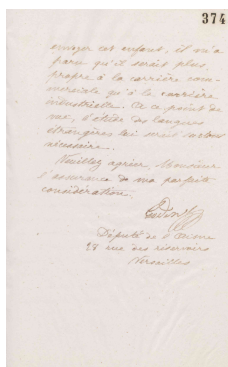 374
envoyer cet enfant, il m'a
paru qu'il serait plus
propre à la carrière com-
merciale qu'à la carrière
industrielle. A ce point de
vue, l'étude des langues
étrangères lui serait surtout
nécessaire.
Veuillez agréer, Monsieur
l'assurance de ma parfaite
considération.
Godin
Député de l'Aisne
28 rue des réservoirs
Versailles